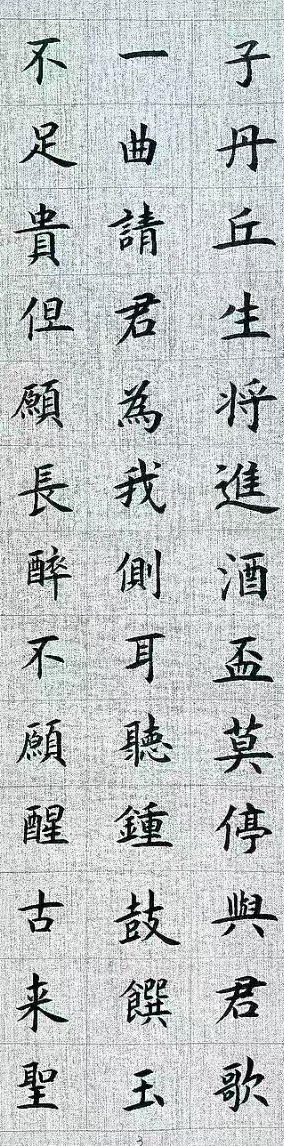 子丹丘生将進酒盃莫停與君歌
一曲請君為我側耳聽鍾鼓饌玉
不足貴但願長醉不願醒古来聖